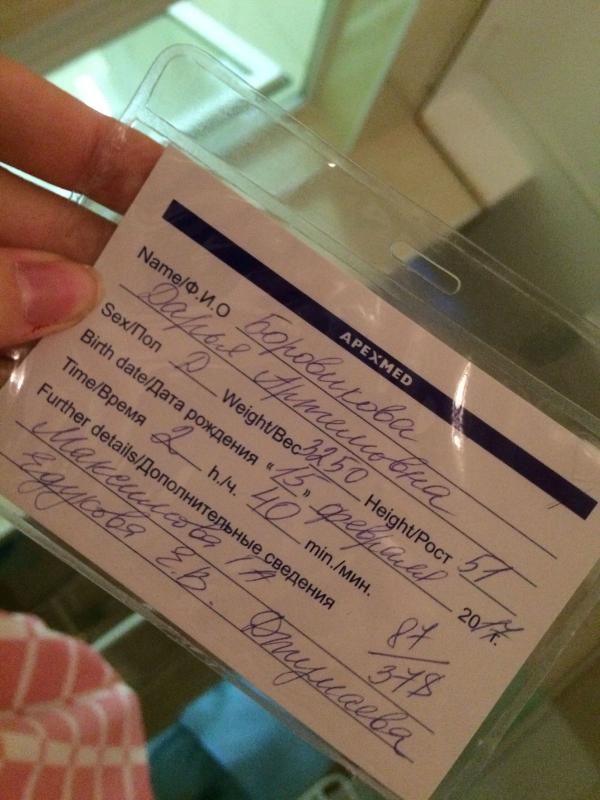 APEXMED
Name/Ф.И.О Боровикова
Дарья Артемовна
Sex/Пол Д Weight/Вес 3250 Height/Рост 51
Birth date/Дата рождения “15” февраля 2017г.
Time/Время 2 h./ч. 40 min./мин.
Further details/Дополнительные сведения
Максимова ГА 87/378
Едукова Е.В. Джумаева